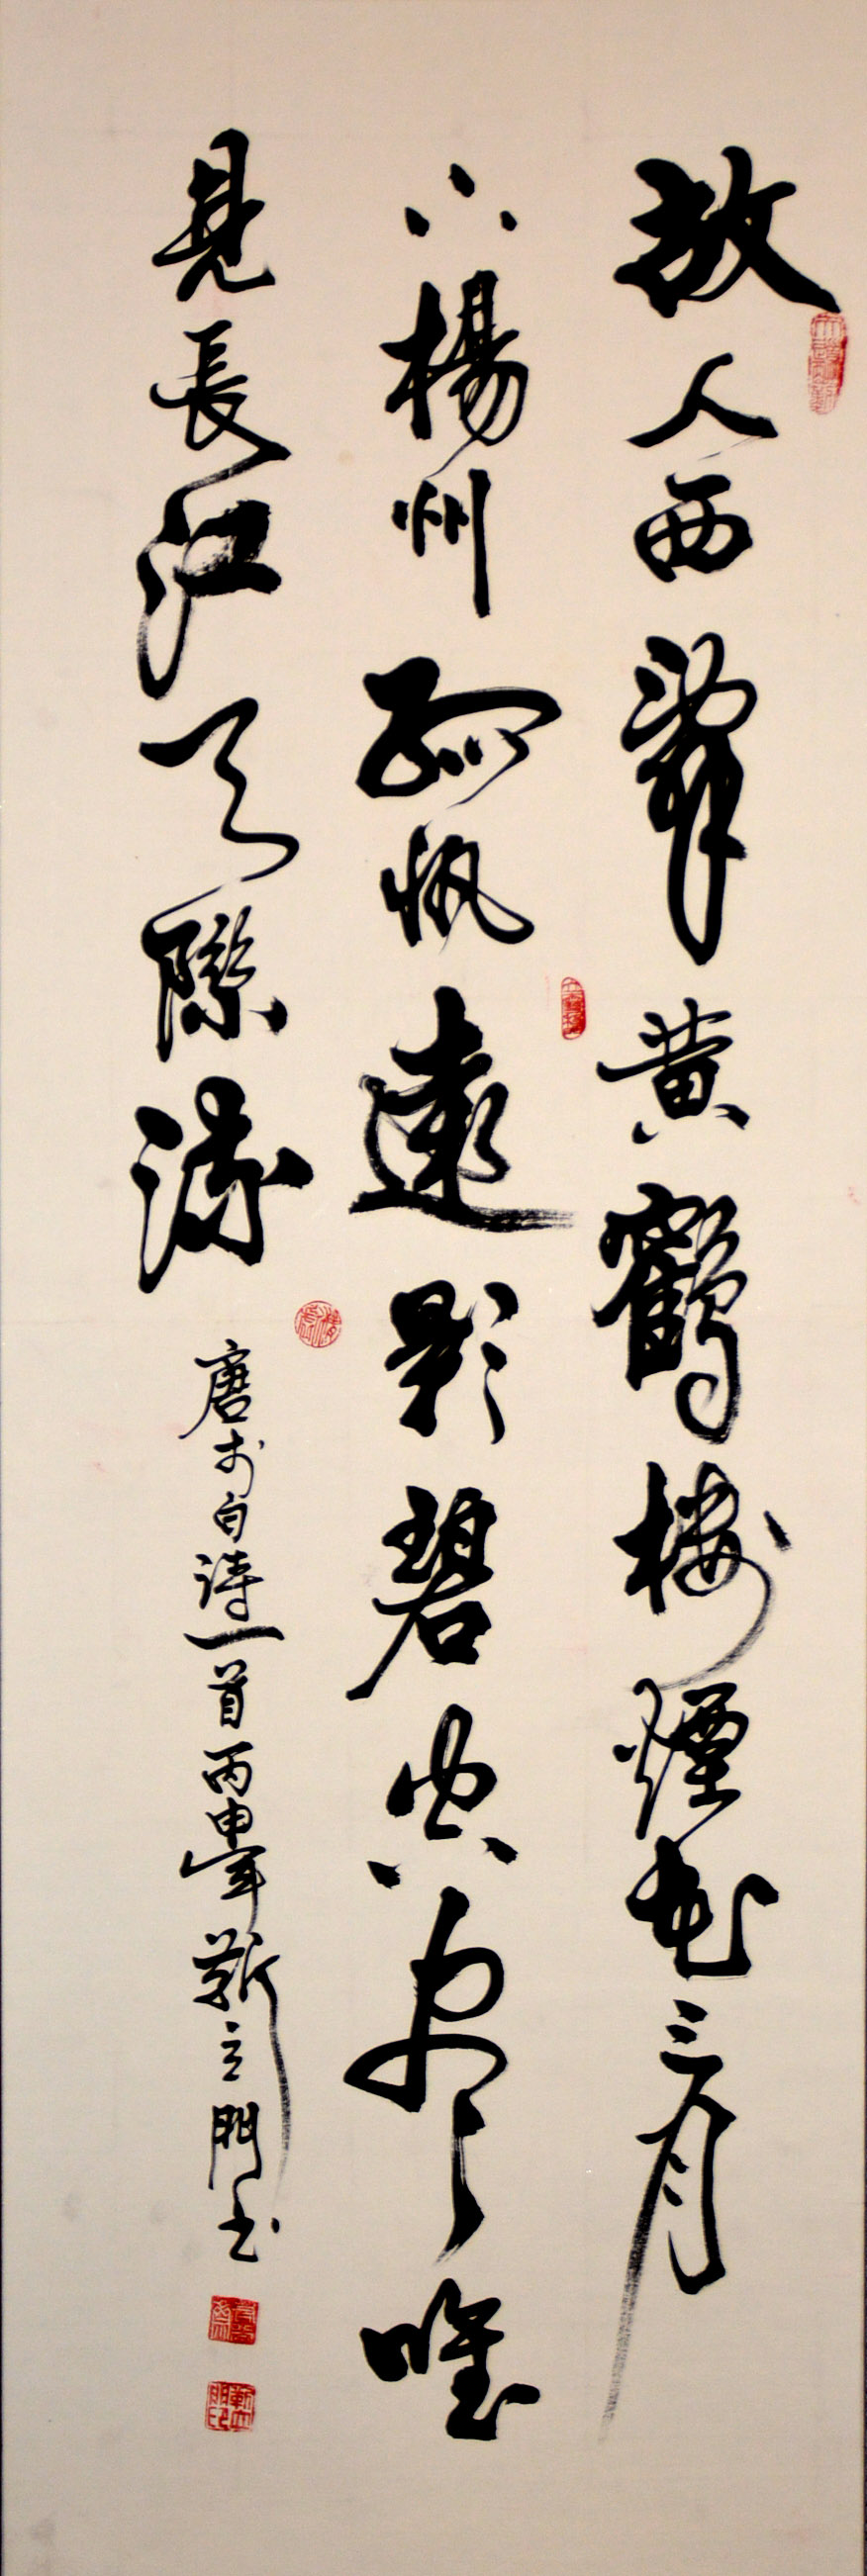 故人西辭黄鶴樓煙花三月
下楊州孤帆遠影碧空盡唯
見長江天際流
唐李白詩一首丙申年靳立門书